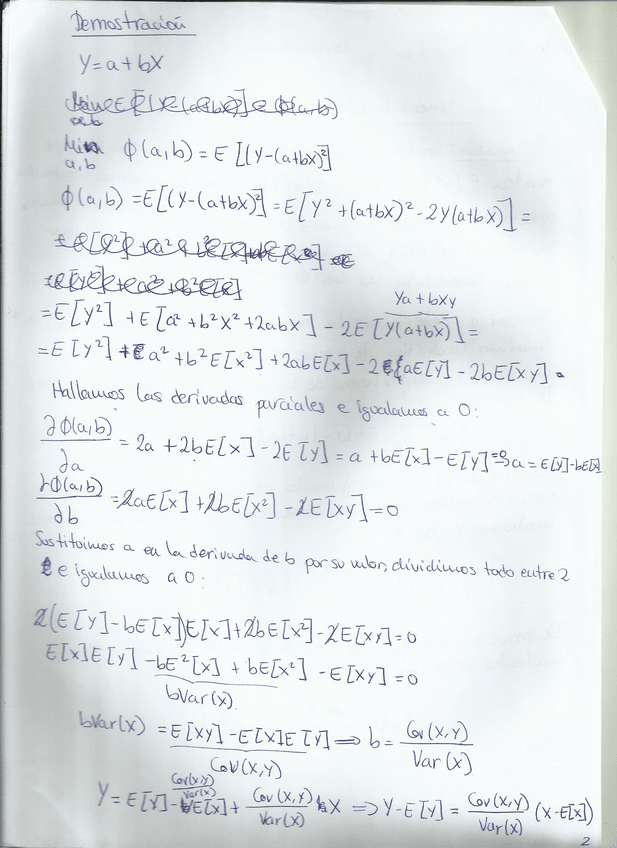 Demostración
Y = a + bX
Min φ(a,b) = E[(Y-(a+bX)²]
a,b
φ(a,b) = E[(Y-(a+bX)²] = E[Y² + (a+bX)² - 2Y(a+bX)] =
Ya + bXy
= E[Y²] + E[a² + b²X² + 2abX] - 2E[Y(a+bX)] =
= E[Y²] + a² + b²E[X²] + 2abE[X] - 2aE[Y] - 2bE[XY]
Hallamos las derivadas parciales e igualamos a 0:
∂φ(a,b)/∂a = 2a + 2bE[X] - 2E[Y] = a + bE[X] - E[Y] = 0 a = E[Y] - bE[X]
∂φ(a,b)/∂b = 2aE[X] + 2bE[X²] - 2E[XY] = 0
Sustituimos a en la derivada de b por su valor, dividimos todo entre 2
e igualamos a 0:
2(E[Y] - bE[X])E[X] + 2bE[X²] - 2E[XY] = 0
E[X]E[Y] - bE²[X] + bE[X²] - E[XY] = 0
bVar(X).
bVar(X) = E[XY] - E[X]E[Y] ⟹ b = Cov(X,Y)/Var(X)
Cov(X,Y)
Y = E[Y] - Cov(X,Y)/Var(X) E[X] + Cov(X,Y)/Var(X) X ⟹ Y - E[Y] = Cov(X,Y)/Var(X) (X - E[X])
2